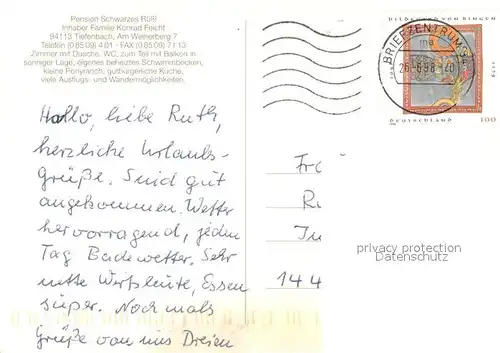 Pension Schwarzes Rößl
Inhaber Familie Konrad Feicht
94113 Tiefenbach, Am Weiherberg 7
Telefon (0 85 09) 4 01 - FAX (0 85 09) 7 1 13
Zimmer mit Dusche, WC, zum Teil mit Balkon in
sonniger Lage, eigenes beheiztes Schwimmbecken,
kleine Ponyranch, gutbürgerliche Küche,
viele Ausflugs- und Wandermöglichkeiten.
Hallo, liebe Ruth,
herzliche Urlaubs-
grüße. Sind gut
angekommen. Wetter
hervorragend, jeden
Tag Badewetter. Sehr
nette Wirtsleute, Essen
super. Nochmals
Grüße von uns Dreien
HILDEGARD VON BINGEN
BRIEFZENTRUM
26.-6.98
100
DEUTSCHLAND
Fr
R
In
144
privacy protection
Datenschutz